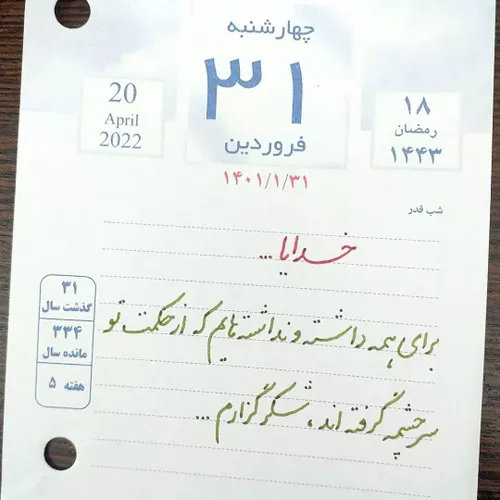 چهارشنبه
۳۱
فروردین
۱۴۰۱/۱/۳۱
20
April
2022
۱۸
رمضان
۱۴۴۳
شب قدر
خدایا ...
۳۱
گذشت سال
۳۳۴
مانده سال
هفته ۵
برای همه داشته و نداشته هایم که از حکمت تو
سرچشمه گرفته اند، شکرگزارم ...